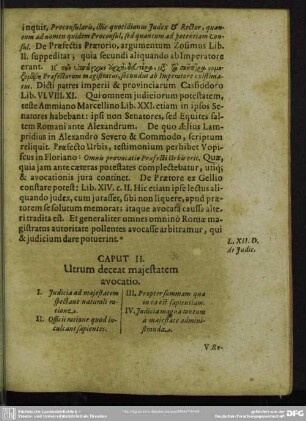 inquit, Proconsularis, illic quotidianus Judex & Rector, quantum ad nomen quidem Proconsul, sed quantum ad potentiam Consul.
De Præfectis Prætorio, argumentum Zosimus Lib.
II. suppeditat; quia secundi aliquando ab Imperatore
erant.
Præfectorum magistratus, secundus ab Imperatore existimatus.
Dicti patres imperii & provinciarum Cassiodoro
Lib. VI. VIII. XI. Qui omnem judiciorum potestatem,
teste Ammiano Marcellino Lib. XXI. etiam in ipsos Senatores
habebant: ipsi non Senatores, sed Equites saltem
Romani ante Alexandrum. De quo Ælius Lampridius
in Alexandro Severo & Commodo, scriptum
reliquit. Præfecto Urbis, testimonium perhibet Vopiscus
in Floriano: Omnis provocatio Præfecti Urbis erit. Quæ,
quia jam ante cæteras potestates complectebatur, utiq;
& avocationis jura continet. De Prætore ex Gellio
constare potest: Lib. XIV. c. II. Hic etiam ipse lectus aliquando
judex, cum jurasset, sibi non liquere, apud prætorem
se solutum memorat: itaque avocata caussa alteri
tradita est. Et generaliter omnes omnino Romæ magistratus
autoritate pollentes avocasse arbitramur, qui
& judicium dare potuerint.*
L. XII. D.
de Judic.
CAPUT II.
Utrum deceat majestatem
avocatio.
I. Judicia ad majestatem
spectant naturali ratione.
II. Officii ratione quod inculcant
sapientes.
III. Propter summam quæ
in ea est sapientiam.
IV. Judicia magna tantum
a majestate administranda.
V. Re-